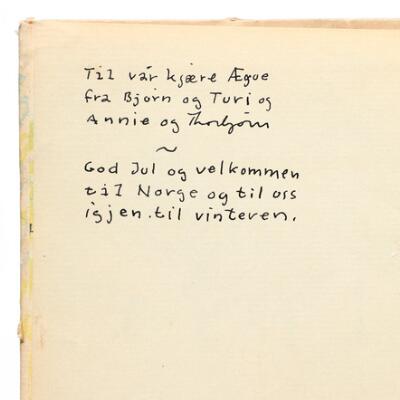 Til vår kjære Ægue
fra Bjørn og Turi og
Annie og Thorbjørn
~
God Jul og velkommen
til Norge og til oss
igjen. til vinteren.